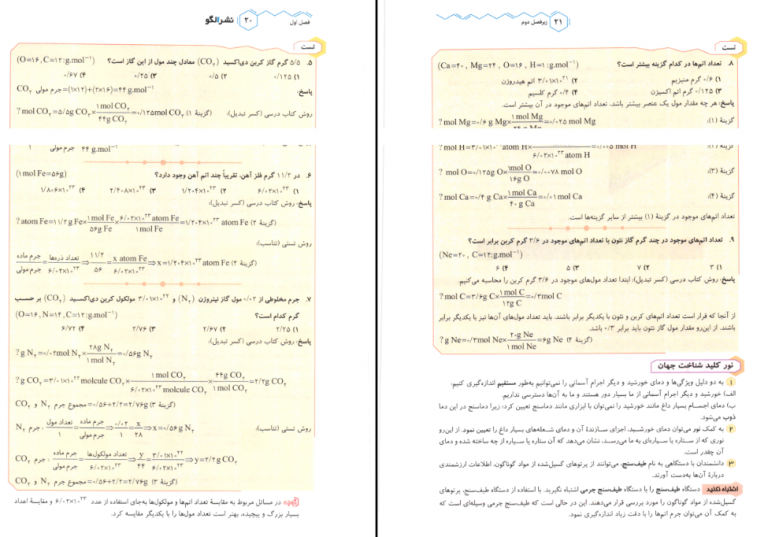 نشرالگو
۲۰
فصل اول
تست
۵. ۵/۵ گرم گاز کربن دی‌اکسید (CO₂) معادل چند مول از این گاز است؟ (O=۱۶, C=۱۲:g.mol⁻¹)
۱) ۰/۱۲۵ ۲) ۰/۵ ۳) ۰/۲۵ ۴) ۰/۶۷
پاسخ: CO₂ جرم مولی =(۱×۱۲)+(۲×۱۶)=۴۴ g.mol⁻¹
روش کتاب درسی (کسر تبدیل): (گزینهٔ ۱) ? mol CO₂=۵/۵g CO₂×1 mol CO₂/۴۴g CO₂=۰/۱۲۵mol CO₂
جرم مولی ۴۴ g.mol⁻¹
۶. در ۱۱/۲ گرم فلز آهن، تقریباً چند اتم آهن وجود دارد؟ (۱ mol Fe=۵۶g)
۱) ۶/۰۲×۱۰²³ ۲) ۱/۲۰۴×۱۰²³ ۳) ۲/۴۰۸×۱۰²³ ۴) ۱/۸۰۶×۱۰²³
پاسخ: روش کتاب درسی (کسر تبدیل):
(گزینهٔ ۲) ? atom Fe=۱۱/۲g Fe×1 mol Fe/۵۶g Fe×۶/۰۲×۱۰²³ atom Fe/1 mol Fe=۱/۲۰۴×۱۰²³ atom Fe
روش تستی (تناسب):
(گزینهٔ ۲) جرم ماده/جرم مولی=تعداد ذره‌ها/۶/۰۲×۱۰²³⇒۱۱/۲/۵۶=x atom Fe/۶/۰۲×۱۰²³⇒x=۱/۲۰۴×۱۰²³ atom Fe
۷. جرم مخلوطی از ۰/۰۲ مول گاز نیتروژن (N₂) و ۳/۰۱×۱۰²² مولکول کربن دی‌اکسید (CO₂) بر حسب
گرم کدام است؟ (O=۱۶, N=۱۴, C=۱۲:g.mol⁻¹)
۱) ۲/۲۵ ۲) ۲/۶۷ ۳) ۲/۷۶ ۴) ۶/۷۲
پاسخ: روش کتاب درسی (کسر تبدیل):
? g N₂=۰/۰۲mol N₂×۲۸g N₂/1 mol N₂=۰/۵۶g N₂
? g CO₂=۳/۰۱×۱۰²² molcule CO₂×1 mol CO₂/۶/۰۲×۱۰²³ molcule CO₂×۴۴g CO₂/1 mol CO₂=۲/۲g CO₂
(گزینهٔ ۳) CO₂ و N₂ مجموع جرم=۰/۵۶+۲/۲=۲/۷۶g
روش تستی (تناسب): N₂ جرم : جرم ماده/جرم مولی=تعداد مول/۱⇒۰/۰۲/۱=x/۲۸⇒x=۰/۵۶g N₂
CO₂ جرم : جرم ماده/جرم مولی=تعداد مولکول‌ها/۶/۰۲×۱۰²³⇒y/۴۴=۳/۰۱×۱۰²²/۶/۰۲×۱۰²³⇒y=۲/۲g CO₂
(گزینهٔ ۳) CO₂ و N₂ مجموع جرم=۰/۵۶+۲/۲=۲/۷۶g
در مسائل مربوط به مقایسهٔ تعداد اتم‌ها و مولکول‌ها به‌جای استفاده از عدد ۶/۰۲×۱۰²³ و مقایسهٔ اعداد
بسیار بزرگ و پیچیده، بهتر است تعداد مول‌ها را با یکدیگر مقایسه کرد.
۲۱
زیرفصل دوم
تست
۸. تعداد اتم‌ها در کدام گزینه بیشتر است؟ (Ca=۴۰, Mg=۲۴, O=۱۶, H=۱:g.mol⁻¹)
۱) ۰/۶ گرم منیزیم ۲) ۳/۰۱×۱۰²¹ اتم هیدروژن
۳) ۰/۱۲۵ گرم اتم اکسیژن ۴) ۰/۴ گرم کلسیم
پاسخ: هر چه مقدار مول یک عنصر بیشتر باشد، تعداد اتم‌های موجود در آن بیشتر است.
گزینهٔ (۱): ? mol Mg=۰/۶ g Mg×1 mol Mg/۲۴ g Mg=۰/۰۲۵ mol Mg
? mol H=۳/۰۱×۱۰²¹ atom H×/۶/۰۲×۱۰²³ atom H=۰/۰۰۵ mol H
گزینهٔ (۳): ? mol O=۰/۱۲۵g O×1mol O/۱۶g O=۰/۰۰۷۸ mol O
گزینهٔ (۴): ? mol Ca=۰/۴ g Ca×1 mol Ca/۴۰ g Ca=۰/۰۱ mol Ca
تعداد اتم‌های موجود در گزینهٔ (۱) بیشتر از سایر گزینه‌ها است.
۹. تعداد اتم‌های موجود در چند گرم گاز نئون با تعداد اتم‌های موجود در ۳/۶ گرم کربن برابر است؟
(Ne=۲۰, C=۱۲:g.mol⁻¹)
۱) ۳ ۲) ۷ ۳) ۵ ۴) ۶
پاسخ: روش کتاب درسی (کسر تبدیل): ابتدا تعداد مول‌های موجود در ۳/۶ گرم کربن را محاسبه می‌کنیم.
? mol C=۳/۶g C×1 mol C/۱۲g C=۰/۳mol C
از آنجا که قرار است تعداد اتم‌های کربن و نئون با یکدیگر برابر باشند، باید تعداد مول‌های آن‌ها نیز با یکدیگر برابر
باشند. از این‌رو مقدار مول گاز نئون باید برابر ۰/۳ باشد.
(گزینهٔ ۴) ? g Ne=۰/۳mol Ne×۲۰g Ne/1 mol Ne=۶g Ne
نور کلید شناخت جهان
۱ به دو دلیل ویژگی‌ها و دمای خورشید و دیگر اجرام آسمانی را نمی‌توانیم به‌طور مستقیم اندازه‌گیری کنیم:
الف) خورشید و دیگر اجرام آسمانی از ما بسیار دور هستند و ما به آن‌ها دسترسی نداریم.
ب) دمای اجسام بسیار داغ مانند خورشید را نمی‌توان با ابزاری مانند دماسنج تعیین کرد؛ زیرا دماسنج در این دما
ذوب می‌شود.
۲ به کمک نور می‌توان دمای خورشید، اجزای سازندهٔ آن و دمای شعله‌های بسیار داغ را تعیین نمود. از این‌رو
نوری که از ستاره یا سیاره‌ای به ما می‌رسد، نشان می‌دهد که آن ستاره یا سیاره از چه ساخته شده و دمای
آن چقدر است.
۳ دانشمندان با دستگاهی به نام طیف‌سنج، می‌توانند از پرتوهای گسیل‌شده از مواد گوناگون، اطلاعات ارزشمندی
دربارهٔ آن‌ها به‌دست آورند.
اشتباه نکنید دستگاه طیف‌سنج را با دستگاه طیف‌سنج جرمی اشتباه نگیرید. با استفاده از دستگاه طیف‌سنج، پرتوهای
گسیل‌شده از مواد گوناگون را مورد بررسی قرار می‌دهند. این در حالی است که طیف‌سنج جرمی وسیله‌ای است که
به کمک آن می‌توان جرم اتم‌ها را با دقت زیاد اندازه‌گیری نمود.